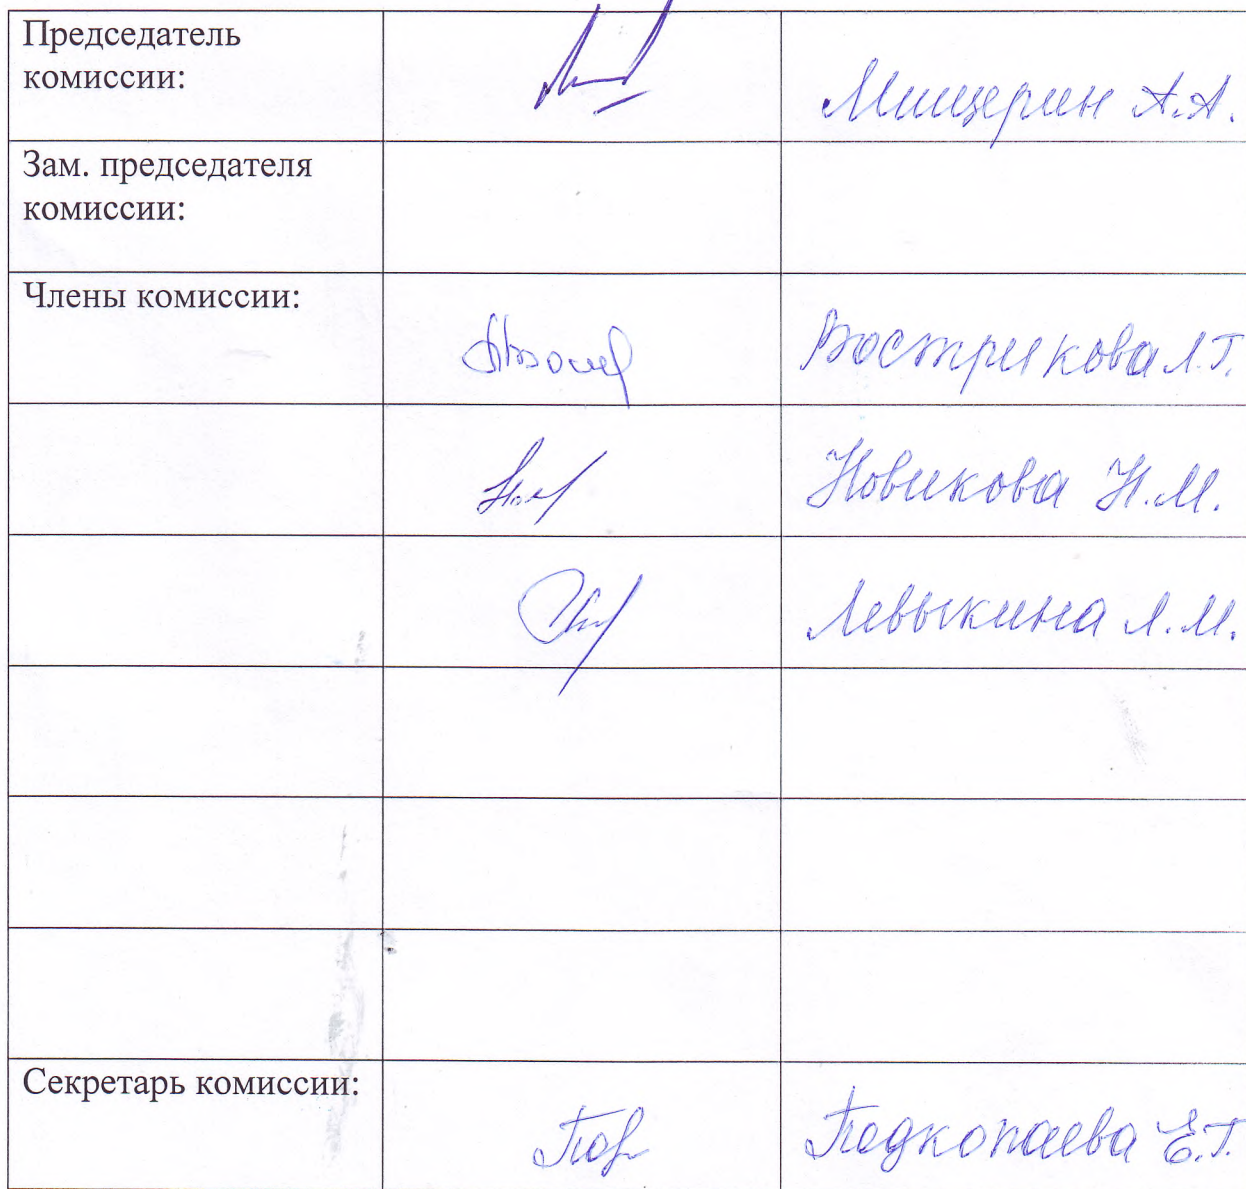 Председатель
комиссии:
Мищерин А.А.
Зам. председателя
комиссии:
Члены комиссии:
Вострикова Л.Г.
Новикова Н.М.
Левыкина Л.М.
Секретарь комиссии:
Подкопаева Е.Г.